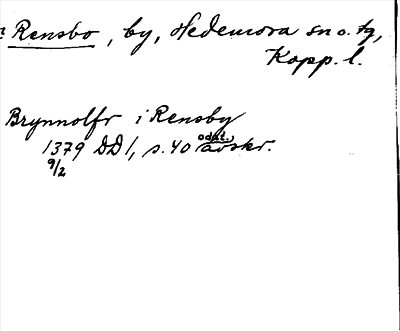 Rensbo, by, Hedemora sn o. tg,
Kopp. l.
Brynnolfr i Rensby
1379 DD 1, s. 40 odat. avskr.
9/2